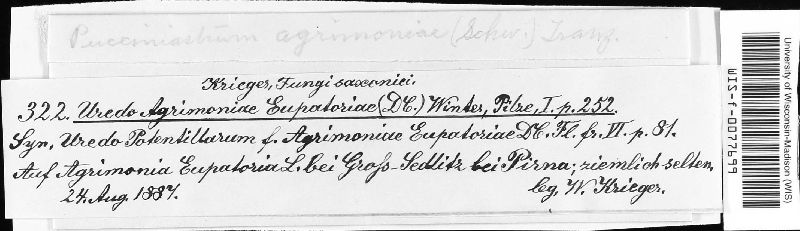 Pucciniastrum agrimoniae (Schw.) Tranz.
Krieger, Fungi saxonici.
322. Uredo Agrimoniae Eupatoriae (DC.) Winter, Pilze, I. p. 252.
Syn. Uredo Potentillarum f. Agrimoniae Eupatoriae DC. Fl. fr. VI. p. 81.
Auf Agrimonia Eupatoria L. bei Groß-Sedlitz bei Pirna; ziemlich selten.
24. Aug. 1887. leg. W. Krieger.
University of Wisconsin-Madison (WIS)
WIS-f-0077659